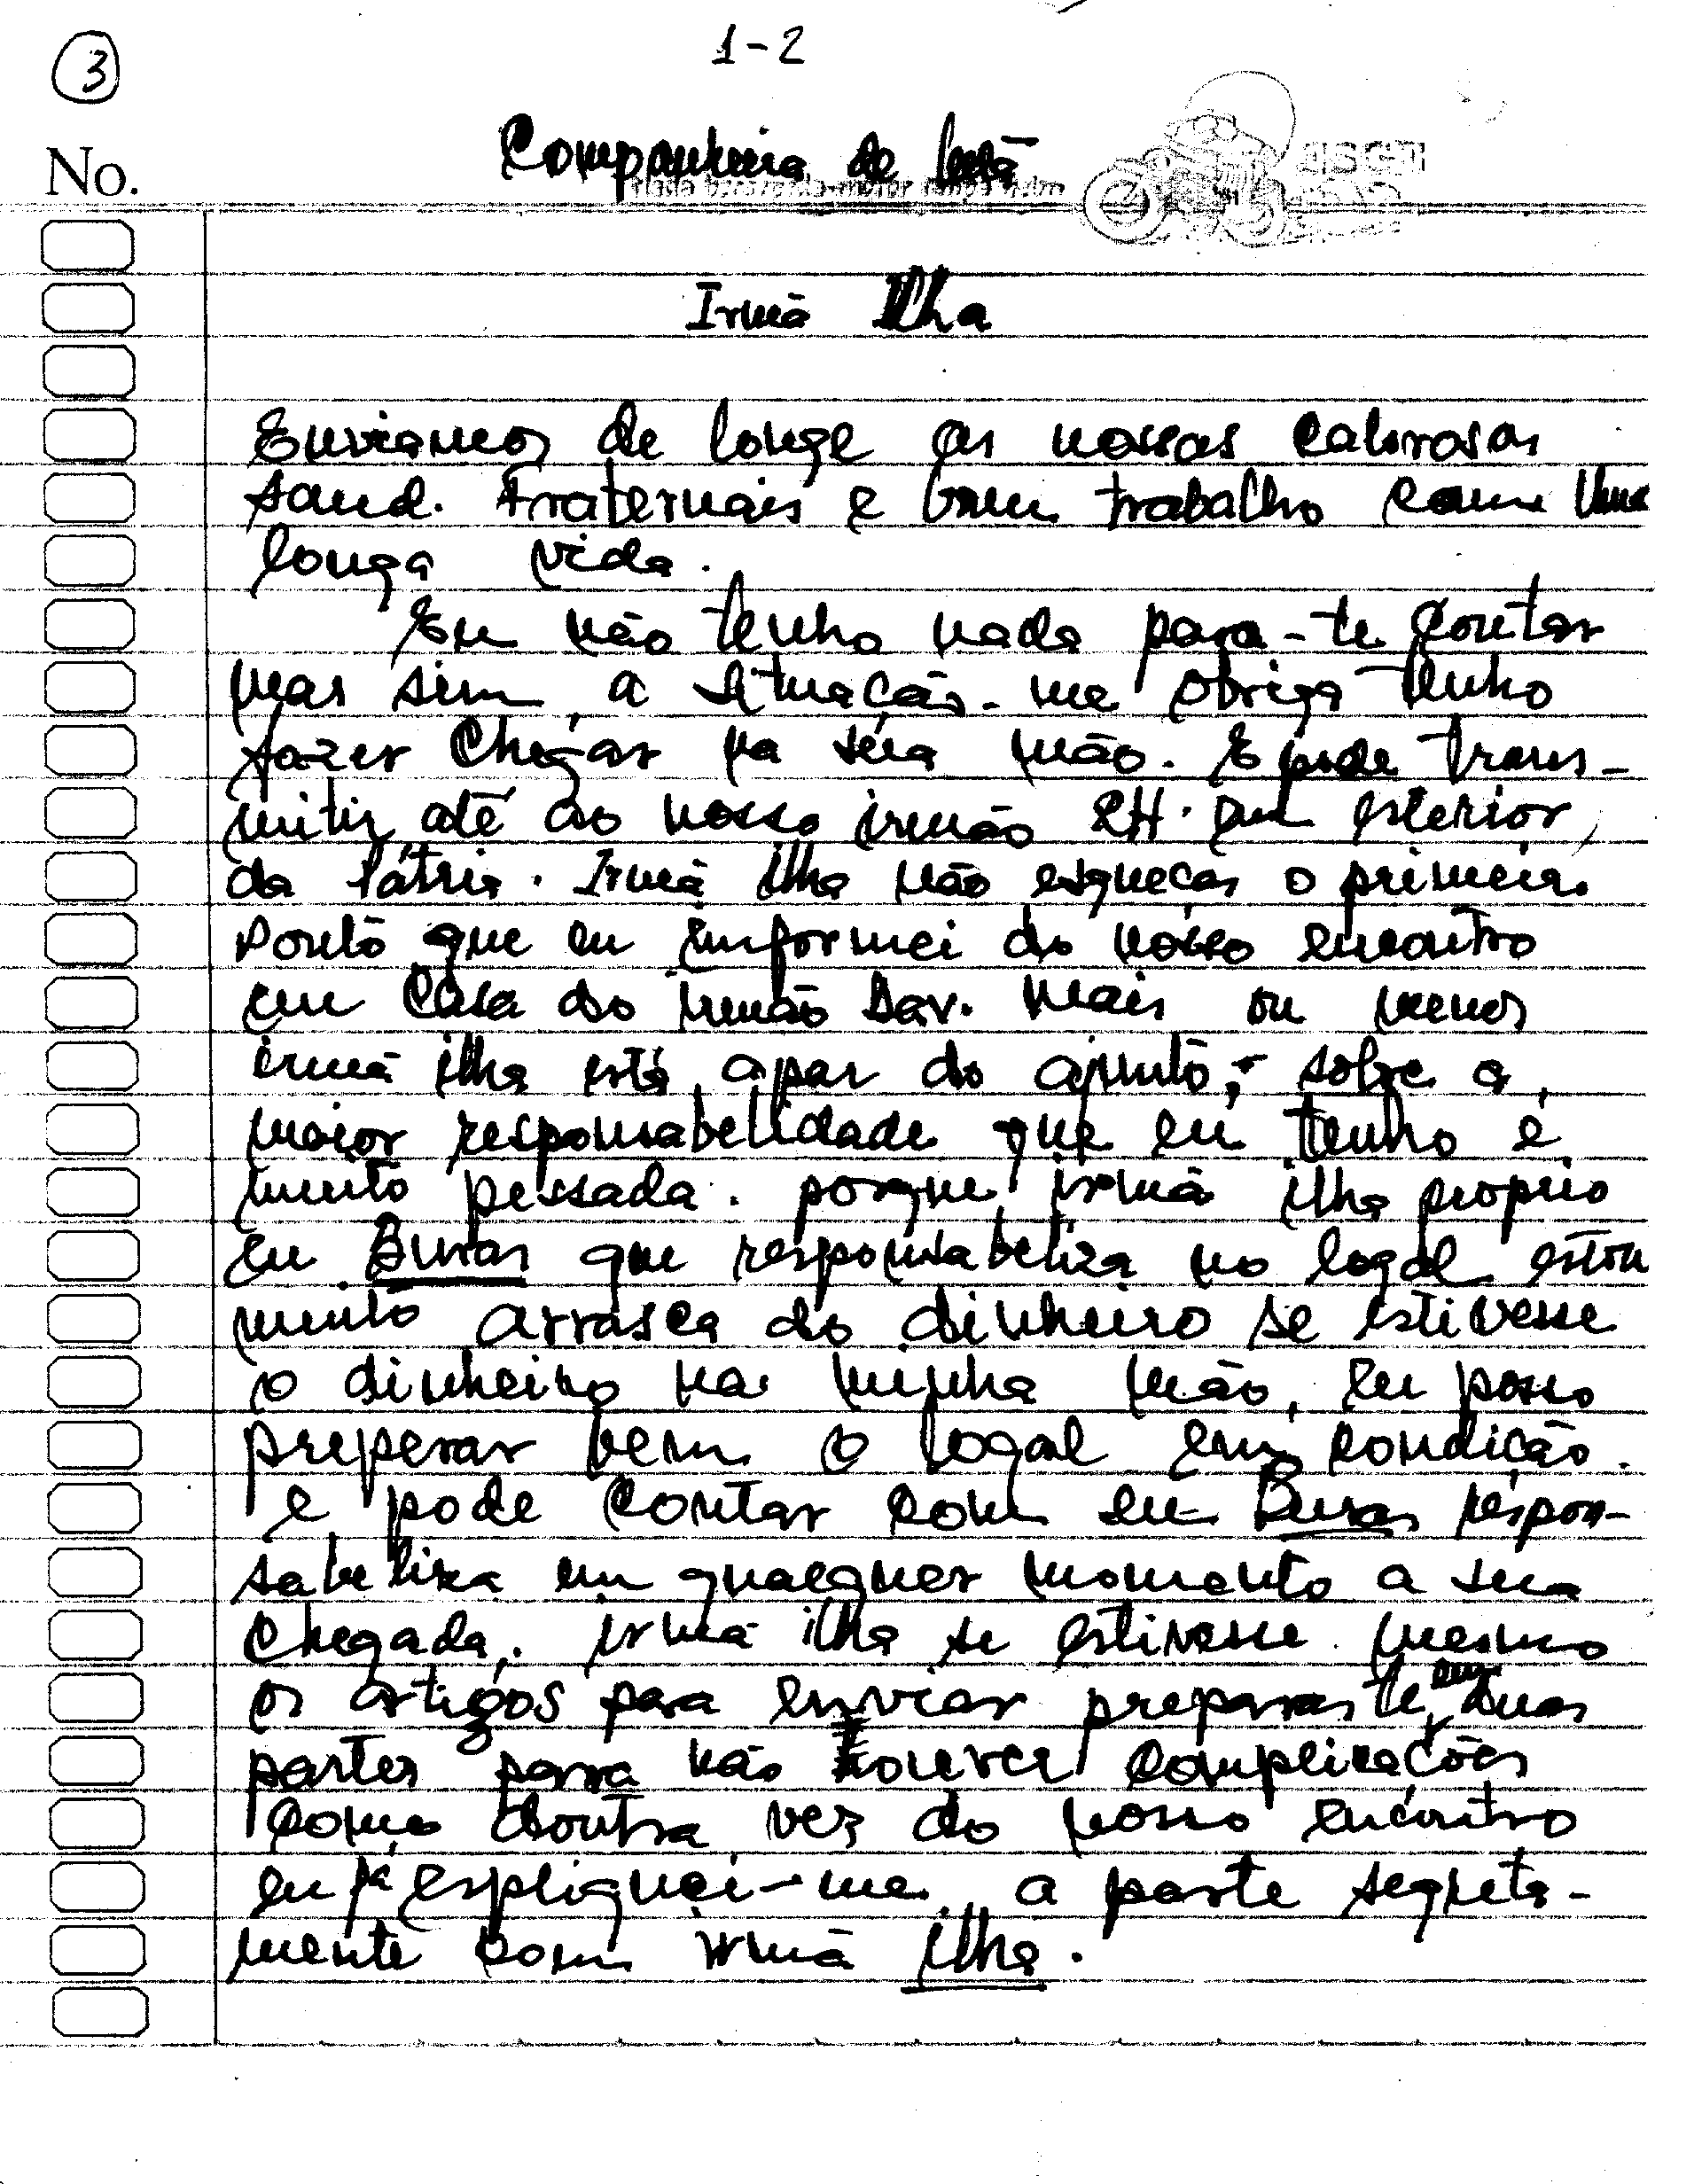 3
1-2
No.
Companheira de luta
Irmã Ilha
Enviamos de longe as nossas calorosas
saud. fraternais e bom trabalho com uma
longa vida.
Eu não tenho nada para-te contar
mas sim, a situação-me obriga tenho
fazer chegar na sua mão. E pode trans-
mitir até ao nosso irmão RH. em esterior
da Pátria. Irmã ilha não esqueças o primeiro
ponto que eu informei do nosso encontro
em casa do irmão Dav. mais ou menos
irmã ilha está apar do ajunto, - sobre a
maior responsabelidade que eu tenho é
muito pessada. porque irmã ilha proprio
eu Buras que responsabeliza no logal estou
muito arrasca do dinheiro se estivesse
o dinheiro na minha mão, eu posso
preperar bem o logal em condição.
e pode contar com eu Buras respon-
sabeliza em qualquer momento a sua
chegada. irmã ilha se estivesse mesmo
os artigos para enviar preparaste em duas
partes para não houver complicações
como doutra vez do nosso encontro
eu já espliquei-me a parte segreta-
mente com irmã ilha.